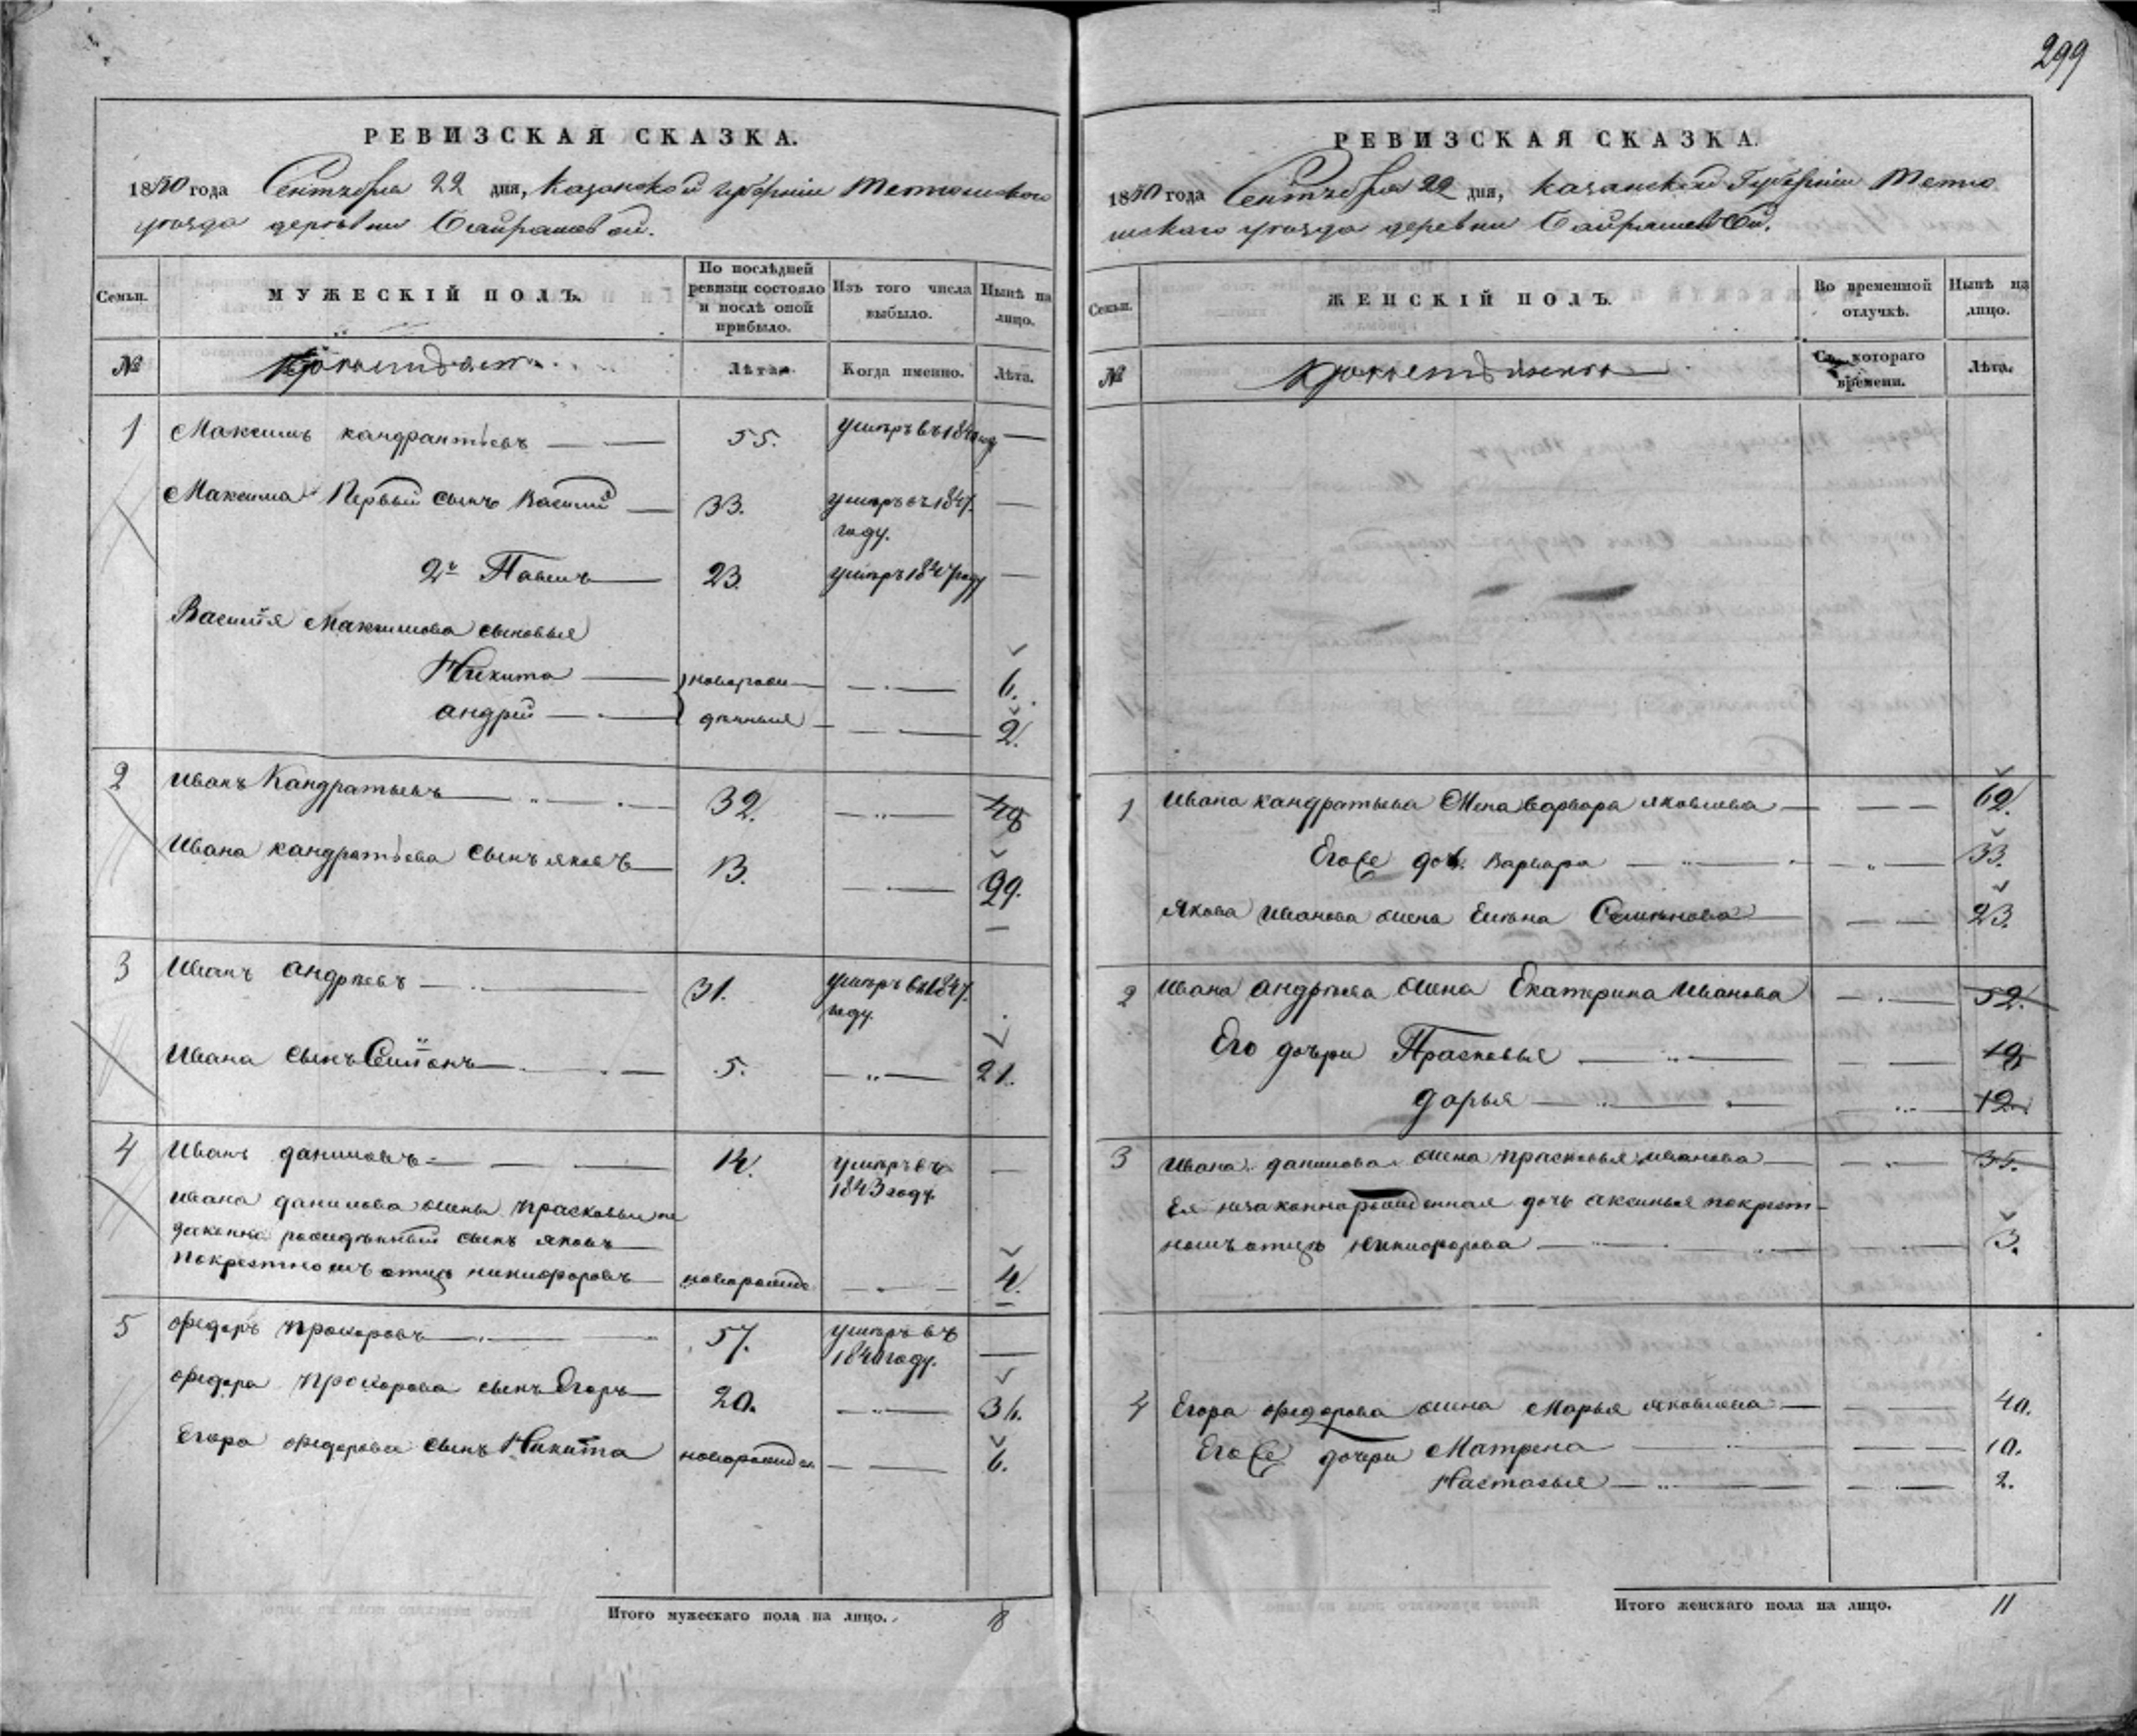 299
РЕВИЗСКАЯ СКАЗКА.
1850 года Сентября 22 дня, Казанской губернии Тетюшского
уезда деревни Байрашевой.
Семьи.
МУЖЕСКІЙ ПОЛЪ.
По послѣдней ревизіи состояло и послѣ оной прибыло.
Изъ того числа выбыло.
Нынѣ на лицо.
№
Лѣта.
Когда именно.
Лѣта.
1 Максимъ кандрантьевъ 55. умеръ въ 1840 год —
Максима Первый сынъ Василий 33. умеръ въ 1847.
году.
2й Павелъ 23. умеръ 1847 году —
Василия Максимова сыновья
Никита новорож 6.
андрей денныя 2.
2 Иванъ Кандратьевъ 32. 48
Ивана кандратьева сынъ яковъ 13. 29.
3 Иванъ андреевъ 31. умеръ въ 1847.
году.
Ивана сынъ Симіонъ 5. 21.
4 Иванъ даниловъ 14. умеръ въ —
1843 году.
Ивана данилова жены прасковьи не
законно рожиденный сынъ яковъ
покрестномъ отцу никифоровъ новорожиде 4.
5 федоръ прохоровъ 57. умеръ въ —
1840 году.
федора прохорова сынъ Егоръ 20. 36.
Егора федорова сынъ Никита новорожиден 6.
Итого мужескаго пола на лицо. 8
РЕВИЗСКАЯ СКАЗКА.
1850 года Сентября 22 дня, казанской Губернии Тетю
шскаго уезда деревни Байрашевой.
Семьи.
ЖЕНСКІЙ ПОЛЪ.
Во временной отлучкѣ.
Нынѣ на лицо.
№
Съ котораго времени.
Лѣта.
1 Ивана кандратьева Жена варвара яковлева 62.
Его же доч. варвара 33.
Якова Иванова жена Елена Семенова 23.
2 Ивана андреева жена Екатерина Иванова 52.
Его дочери Прасковья 19
дарья 12.
3 Ивана данилова жена прасковья иванова 35.
Ея незаконнорожиденная дочь аксинья покрест-
номъ отцу никифорова 3.
4 Егора федорова жена Марья яковлева 40.
Его же дочери Матрена 10.
Настасья 2.
Итого женскаго пола на лицо. 11